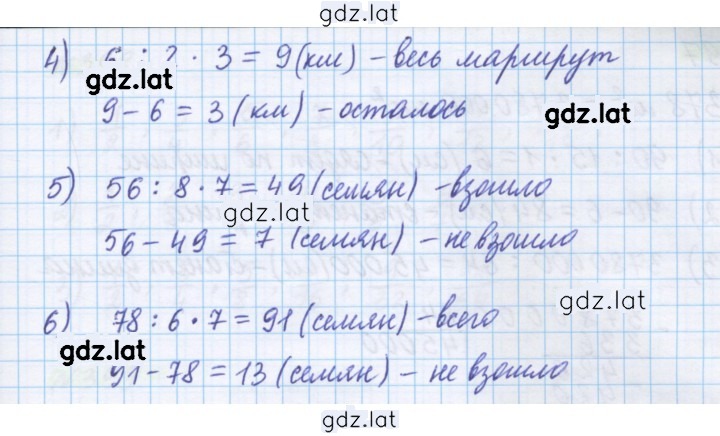 gdz.lat
4) 6 : 2 · 3 = 9 (км) – весь маршрут
gdz.lat
9 – 6 = 3 (км) – осталось
gdz.lat
5) 56 : 8 · 7 = 49 (семян) – взошло
gdz.lat
56 – 49 = 7 (семян) – не взошло
gdz.lat
6) 78 : 6 · 7 = 91 (семян) – всего
gdz.lat
91 – 78 = 13 (семян) – не взошло
gdz.lat